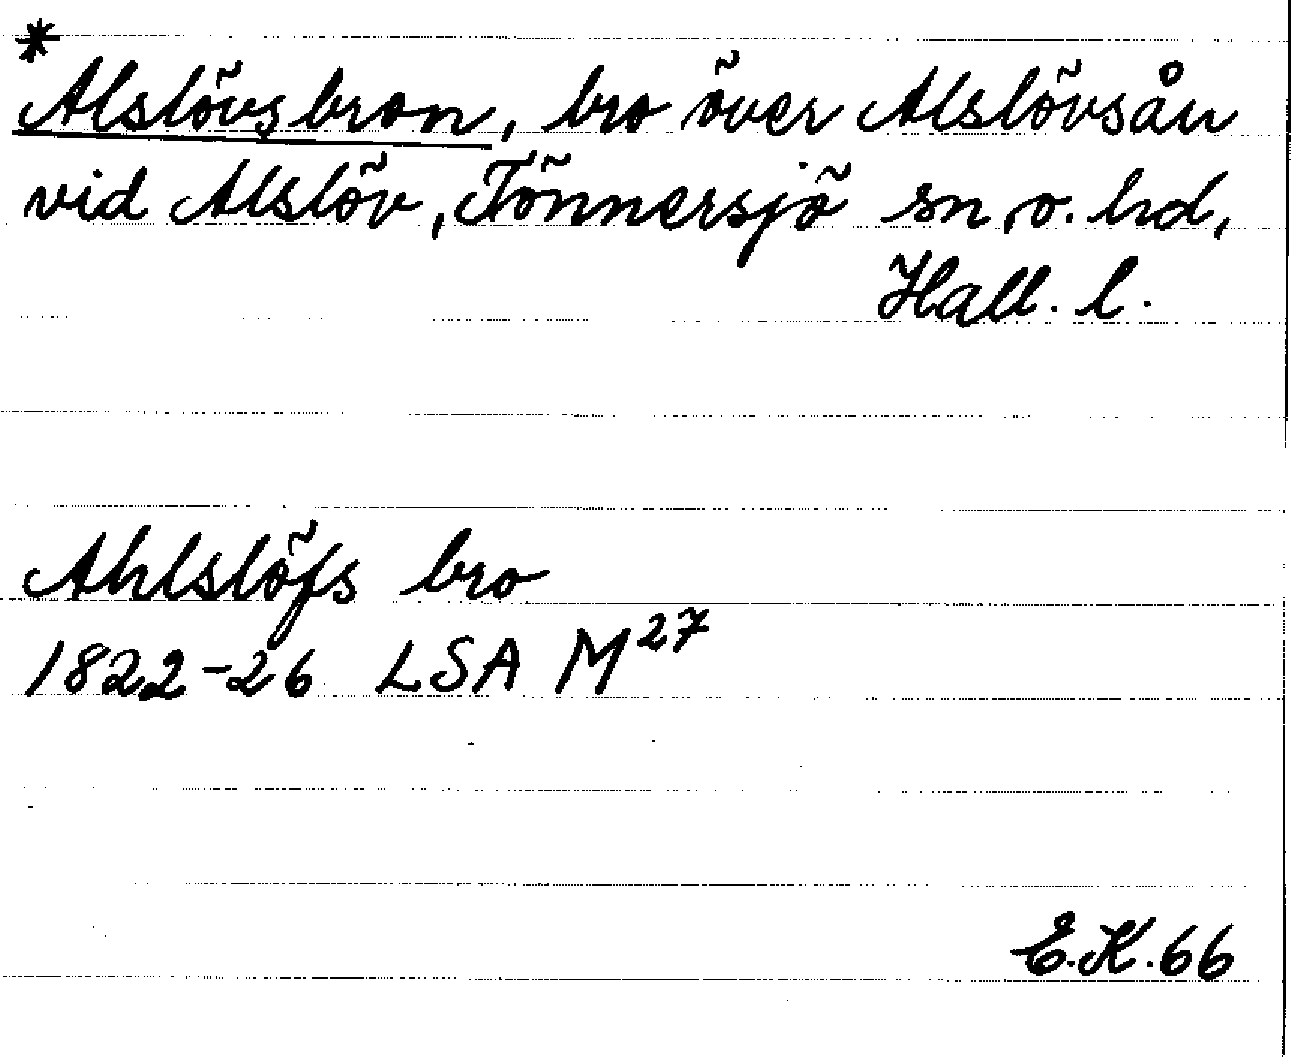 *
Alslövsbron, bro över Alslövsån
vid Alslöv, Tönnersjö sn o. hd,
Hall. l.
Ahlslöfs bro
1822-26 LSA M27
E.K.66